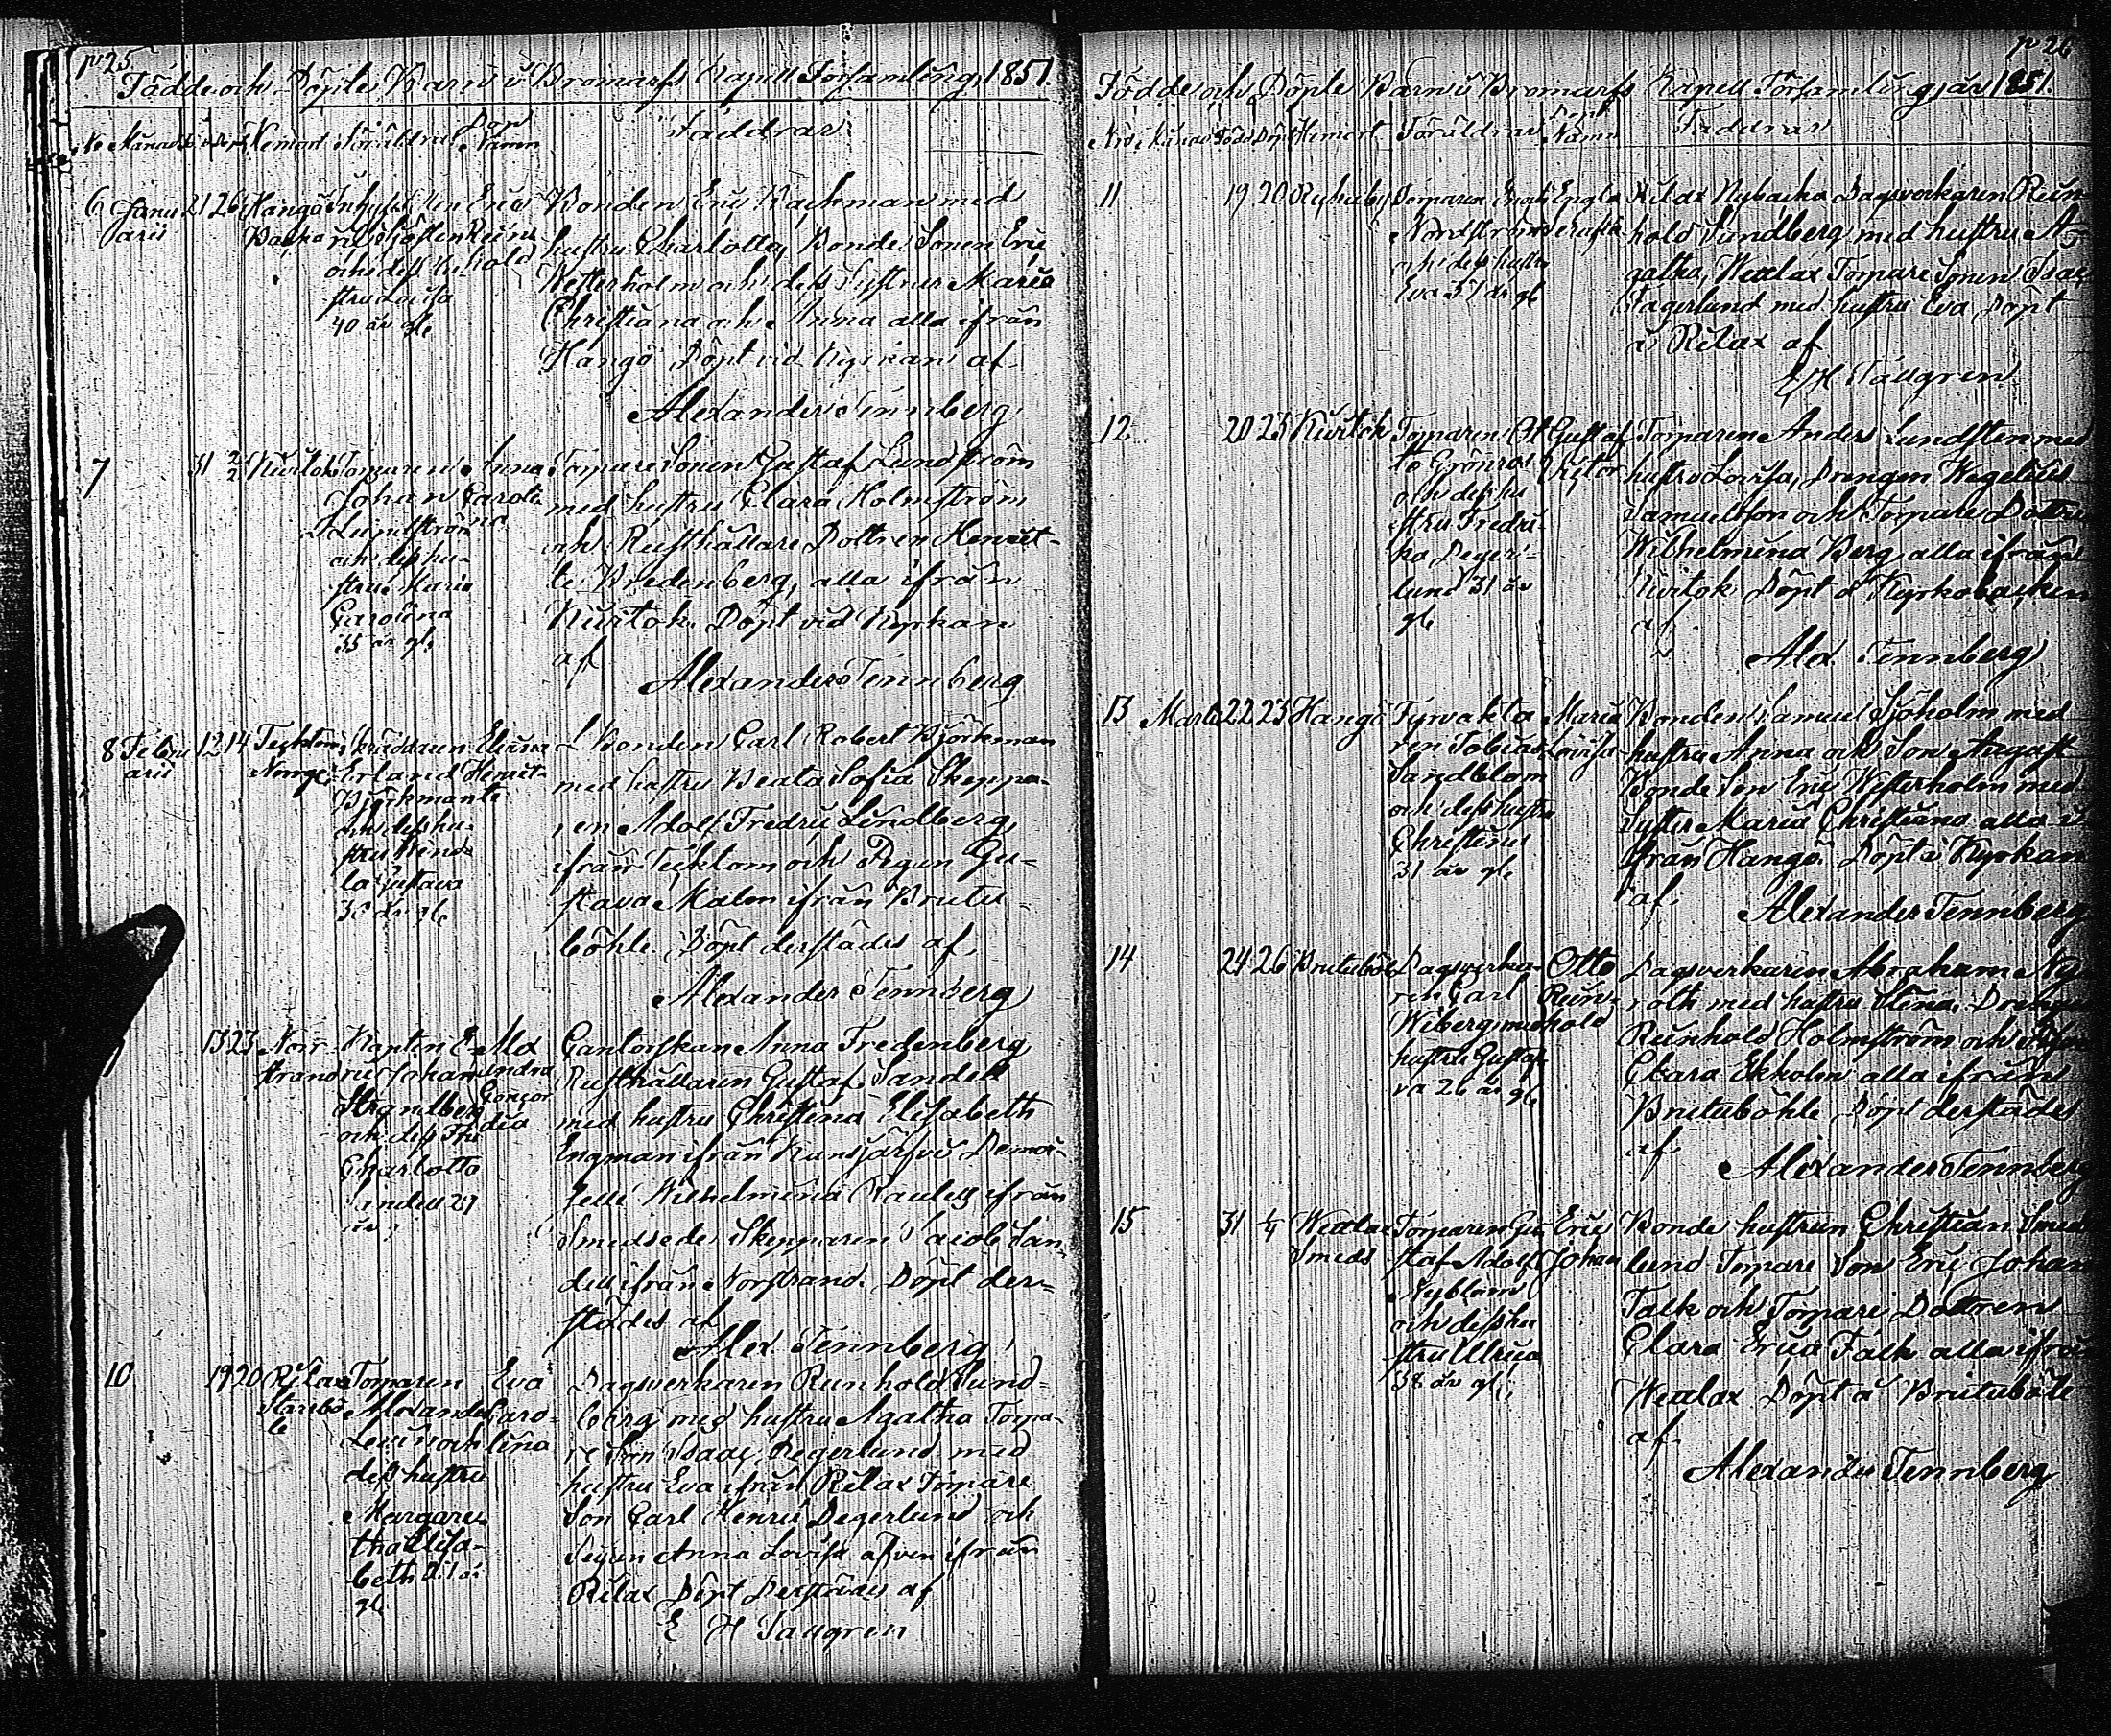 p 25
Födde och Döpte Barn i Bromarfs Capell Församling 1851.
No Månad Hemort Föräldrar Dop Namn Faddrar
6 Januarii 21 26 Hangö Backa
Eric Reinhold
och dess hustru Lovisa
40 år gl.
Bonden Eric Backman med
hustru Charlotta, Bonde Sonen Eric
Westerholm och dess Systrar Maria
Christiana och Anna alla ifrån
Hangö Döpt vid Kyrkan af
Alexander Tennberg
7 31 2/2 Kivitok
Torparen
Johan
Lundström
och dess hu-
stru Maria
Carolina
35 år gl.
Anna
Caroli
na
Torpare Sonen Gustaf Lundström
med hustru Clara Holmström
och Rusthållare Dottren Henriet-
te Bredenberg, alla ifrån
Kivitok. Döpt vid Kyrkan
af
Alexander Tennberg
8 Febru
arii
12 14
Norrgå
Skräddaren
Erland
Björkman
och dess hu-
stru
Gustava
år gl.
Henriet-
te
Bonden Carl Robert Björkman
med hustru Beata Sofia Skeppa-
ren Adolf Fredric Lindberg
ifrån Täcktom och Pigan Gu-
stava Malm ifrån Brutu-
böhle. Döpt derstädes af
Alexander Tennberg
13 23 Norr
strand
Kapten
Johan
Strandberg
och dess Fru
Charlotta
Sandell 29
år
Alex
andra
Concor
dia
Cantorskan Anna Fredenberg
Rusthållaren Gustaf Sandell
med hustru Christina Elisabeth
Engman ifrån Kansjärfvi Demoi-
selle Wilhelmina ifrån
Smedsede Skepparen Jacob San-
dell ifrån Norrstrand. Döpt der-
städes af
Alex. Tennberg
10 19 20 Rilax
Torparen
Alexander
och
dess hustru
Margare-
tha Elisa-
beth år
gl.
Eva
Caro-
lina
Dagsverkaren Reinhold Sund-
berg med hustru Agatha Torpa-
re Son Isaac Degerlund med
hustru Eva ifrån Rilax Torpare
Son Carl Henric Degerlund och
Pigan Anna Lovisa äfven ifrån
Rilax Döpt Derstädes af
E H Taugren
p 26
Födde och Döpte Barn i Bromarfs Capell Församling år 1851.
Nro. Månad Född Döpt Hemort Föräldrar Dop Namn Faddrar
11 19 20
Torparen
Nordström
och dess hustru
Eva 37 år gl.
Engla
Serafia
Rilax Nybacka Dagsverkaren Rein
hold Sundberg med hustru A-
gatha, Wättlax Torpare Sonen Isac
Fagerlund med hustru Eva Döpt
i Rilax af
E H Taugren
12 20 23 Kivitok
Torparen Ot
to Grönros
och dess hu
stru Fredri-
ka Deger-
lund 31 år
gl.
Gustaf
Victor
Torparen Anders Lundsten med
hustru Lovisa, Drengen Wegelius
Samuelsson och Torpare Dottren
Wilhelmina Berg alla ifrån
Kivitok Döpt å Kyrkobacken
af
Alex. Tennberg
13 Martii 22 23 Hangö
Fyrvakta
ren Tobias
Sandblom
och dess hustru
Christina
31 år gl.
Maria
Lovisa
Bonden Samuel Sjöholm med
hustru Anna och Son August
Bonde Son Eric Westerholm med
Syster Maria Christiana alla i-
från Hangö. Döpt i Kyrkan
af
Alexander Tennberg
14 24 26 Brutuböle
Dagsverka-
ren Carl
Wiberg med
hustru Gusta-
va 26 år gl.
Otto
Rein-
hold
Dagsverkaren Abraham Ny
roth med hustru Stina, Drengen
Reinhold Holmström och Pigan
Clara Ekholm alla ifrån
Brutuböhle Döpt derstädes
af
Alexander Tennberg
15 31 1/4 Wättlax
Smeds
Torparen Gu
staf Adolf
Nyblom
och dess hu
stru Ulrica
38 år gl.
Eric
Johan
Bonde hustrun Christian Smed
lund Torpare Son Eric Johan
Falk och Torpare Dottren
Clara Erica Falk alla ifrån
Wättlax Döpt i Brutuböle
af
Alexander Tennberg